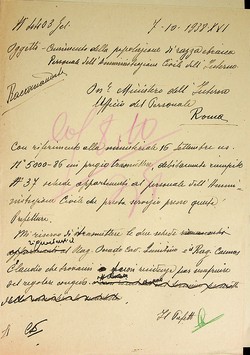 N° 4403 Gab. 7-10-1938 XVI
Oggetto - Censimento della popolazione di razza ebraica
Personale dell'Amministrazione Civile dell'Interno
Raccomandata
On. Ministero dell'Interno
Ufficio del Personale
Roma
Con riferimento alla ministeriale 16 Settembre us.
N° 5000-36 mi pregio trasmettere debitamente compilate
N° 37 schede appartenenti al personale dell'Ammi
nistrazione Civile che presta servizio presso questa
Prefettura.
Mi riservo di trasmettere le due schede
riguardanti
al Rag. Cav. e Rag.
Claudio che trovansi in residenza per usufruire
del regolare congedo.
Il Prefetto